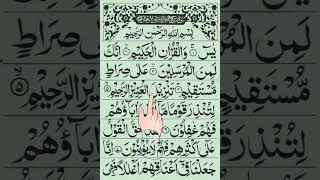 بِسْمِ اللهِ الرَّحْمٰنِ الرَّحِيْمِ
يٰسٓ ۚ وَالْقُرْاٰنِ الْحَكِيْمِ ۙ اِنَّكَ
لَمِنَ الْمُرْسَلِيْنَ ۙ عَلٰى صِرَاطٍ
مُّسْتَقِيْمٍ ؕ تَنْزِيْلَ الْعَزِيْزِ الرَّحِيْمِ ۙ
لِتُنْذِرَ قَوْمًا مَّاۤ اٰبَآؤُهُمْ
فَهُمْ غٰفِلُوْنَ حَقَّ الْقَوْلُ
عَلٰۤى اَكْثَرِهِمْ يُؤْمِنُوْنَ اِنَّا
جَعَلْنَا فِيْۤ اَعْنَاقِهِمْ اَغْلٰلًا